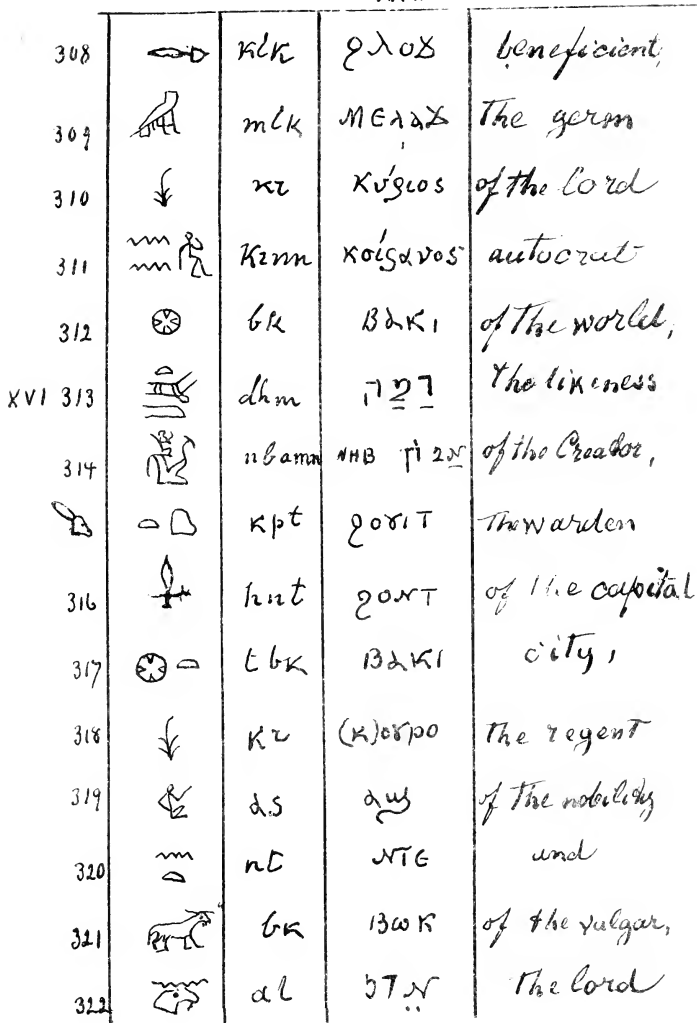 308 klk ϩλοϫ beneficient,
309 mlk ⲘⲈⲗⲁϫ The germ
310 kr κύριος of the lord
311 krnn κοίρανος autocrat
312 bk ⲂⲁⲔⲓ of the world,
XVI 313 dhm דמה the likeness
314 nbamn ⲚⲎⲂ of the Creador,
kpt ϩⲟⲩⲓⲧ The warden
316 hnt ϩⲟⲛⲧ of the capital
317 tbk ⲂⲁⲔⲓ city,
318 kr (ⲕ)ⲟⲩⲣⲟ the regent
319 as ⲁϣ of the nobility
320 nt ⲚⲦⲈ and
321 bk Ⲃⲱⲕ of the vulgar,
322 al the lord